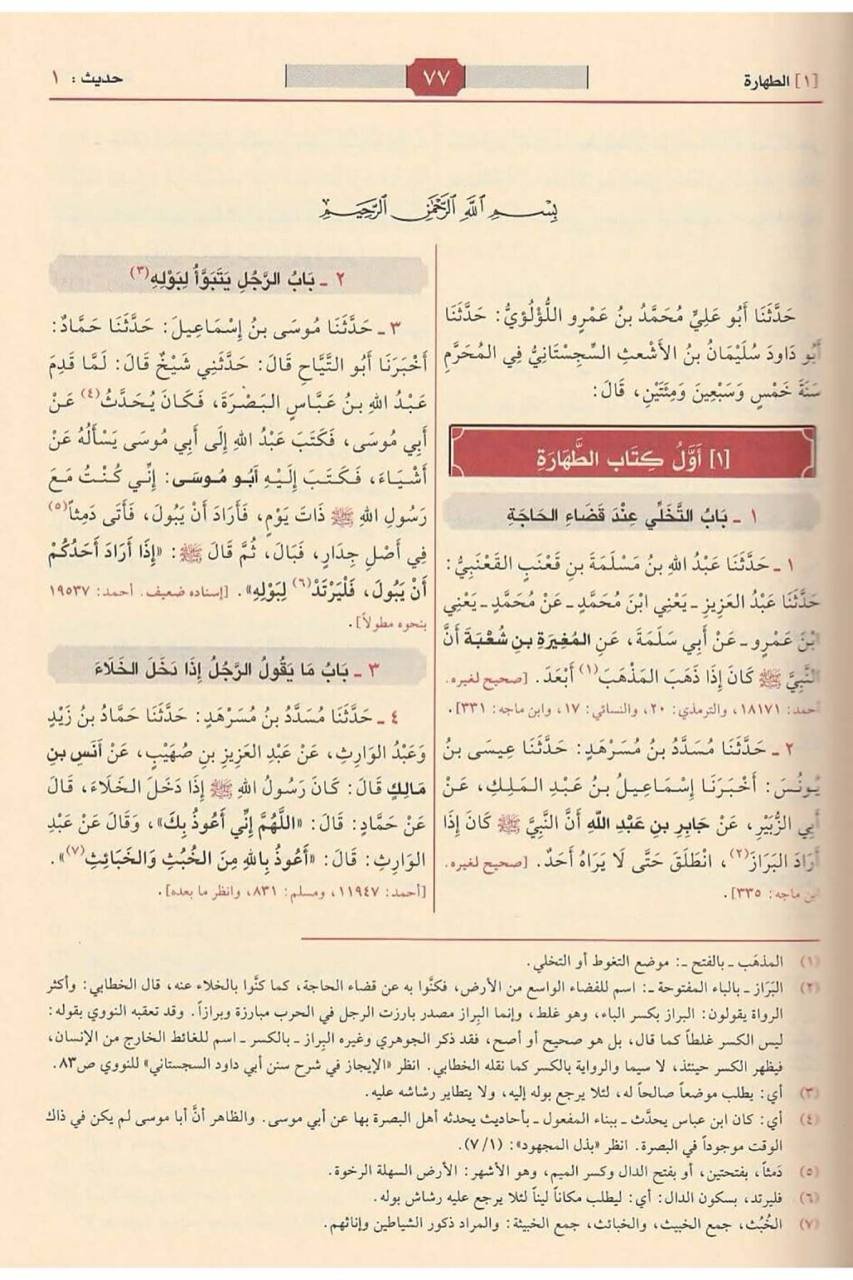 [١] الطهارة
٧٧
حديث : ١
بِسْمِ اللَّهِ الرَّحْمَٰنِ الرَّحِيمِ
حَدَّثَنَا أَبُو عَلِيٍّ مُحَمَّدُ بنُ عَمْرٍو اللُّؤْلُؤِيُّ: حَدَّثَنَا
أَبُو دَاودَ سُلَيْمَانُ بنُ الأَشْعثِ السِّجِسْتَانِيُّ فِي المُحَرَّمِ
سَنَةَ خَمْسٍ وَسَبْعِينَ وَمِئَتَيْنِ، قَالَ:
[١] أَوَّلُ كِتَابِ الطَّهَارَةِ
١ ـ بَابُ التَّخَلِّي عِنْدَ قَضَاءِ الحَاجَةِ
١ ـ حَدَّثَنَا عَبْدُ اللهِ بنُ مَسْلَمَةَ بنِ قَعْنَبٍ القَعْنَبِيُّ:
حَدَّثَنَا عَبْدُ العَزِيزِ ـ يَعْنِي ابْنَ مُحَمَّدٍ ـ عَنْ مُحَمَّدٍ ـ يَعْنِي
ابْنَ عَمْرٍو ـ عَنْ أَبِي سَلَمَةَ، عَنِ المُغِيرَةِ بنِ شُعْبَةَ أَنَّ
النَّبِيَّ ﷺ كَانَ إِذَا ذَهَبَ المَذْهَبَ(١) أَبْعَدَ. [صحيح لغيره.
أحمد: ١٨١٧١، والترمذي: ٢٠، والنسائي: ١٧، وابن ماجه: ٣٣١].
٢ ـ حَدَّثَنَا مُسَدَّدُ بنُ مُسَرْهَدٍ: حَدَّثَنَا عِيسَى بنُ
يُونُسَ: أَخْبَرَنَا إِسْمَاعِيلُ بنُ عَبْدِ المَلِكِ، عَنْ
أَبِي الزُّبَيْرِ، عَنْ جَابِرِ بنِ عَبْدِ اللهِ أَنَّ النَّبِيَّ ﷺ كَانَ إِذَا
أَرَادَ البَرَازَ(٢)، انْطَلَقَ حَتَّى لَا يَرَاهُ أَحَدٌ. [صحيح لغيره.
ابن ماجه: ٣٣٥].
٢ ـ بَابُ الرَّجُلِ يَتَبَوَّأُ لِبَوْلِهِ(٣)
٣ ـ حَدَّثَنَا مُوسَى بنُ إِسْمَاعِيلَ: حَدَّثَنَا حَمَّادٌ:
أَخْبَرَنَا أَبُو التَّيَّاحِ قَالَ: حَدَّثَنِي شَيْخٌ قَالَ: لَمَّا قَدِمَ
عَبْدُ اللهِ بنُ عَبَّاسٍ البَصْرَةَ، فَكَانَ يُحَدَّثُ(٤) عَنْ
أَبِي مُوسَى، فَكَتَبَ عَبْدُ اللهِ إِلَى أَبِي مُوسَى يَسْأَلُهُ عَنْ
أَشْيَاءَ، فَكَتَبَ إِلَيْهِ أَبُو مُوسَى: إِنِّي كُنْتُ مَعَ
رَسُولِ اللهِ ﷺ ذَاتَ يَوْمٍ، فَأَرَادَ أَنْ يَبُولَ، فَأَتَى دَمِثاً(٥)
فِي أَصْلِ جِدَارٍ، فَبَالَ، ثُمَّ قَالَ ﷺ: «إِذَا أَرَادَ أَحَدُكُمْ
أَنْ يَبُولَ، فَلْيَرْتَدْ(٦) لِبَوْلِهِ». [إسناده ضعيف. أحمد: ١٩٥٣٧
بنحوه مطولاً].
٣ ـ بَابُ مَا يَقُولُ الرَّجُلُ إِذَا دَخَلَ الخَلَاءَ
٤ ـ حَدَّثَنَا مُسَدَّدُ بنُ مُسَرْهَدٍ: حَدَّثَنَا حَمَّادُ بنُ زَيْدٍ
وَعَبْدُ الوَارِثِ، عَنْ عَبْدِ العَزِيزِ بنِ صُهَيْبٍ، عَنْ أَنَسِ بنِ
مَالِكٍ قَالَ: كَانَ رَسُولُ اللهِ ﷺ إِذَا دَخَلَ الخَلَاءَ، قَالَ
عَنْ حَمَّادٍ: قَالَ: «اللَّهُمَّ إِنِّي أَعُوذُ بِكَ»، وَقَالَ عَنْ عَبْدِ
الوَارِثِ: قَالَ: «أَعُوذُ بِاللهِ مِنَ الخُبُثِ وَالخَبَائِثِ(٧)».
[أحمد: ١١٩٤٧، ومسلم: ٨٣١، وانظر ما بعده].
(١) المذهَب ـ بالفتح ـ: موضع التغوط أو التخلي.
(٢) البَرَاز ـ بالباء المفتوحة ـ: اسم للفضاء الواسع من الأرض، فكنَّوا به عن قضاء الحاجة، كما كنَّوا بالخلاء عنه، قال الخطابي: وأكثر
الرواة يقولون: البراز بكسر الباء، وهو غلط، وإنما البِراز مصدر بارزت الرجل في الحرب مبارزة وبرازاً. وقد تعقبه النووي بقوله:
ليس الكسر غلطاً كما قال، بل هو صحيح أو أصح، فقد ذكر الجوهري وغيره البِراز ـ بالكسر ـ اسم للغائط الخارج من الإنسان،
فيظهر الكسر حينئذ، لا سيما والرواية بالكسر كما نقله الخطابي. انظر «الإيجاز في شرح سنن أبي داود السجستاني» للنووي ص٨٣.
(٣) أي: يطلب موضعاً صالحاً له، لئلا يرجع بوله إليه، ولا يتطاير رشاشه عليه.
(٤) أي: كان ابن عباس يحدَّث ـ ببناء المفعول ـ بأحاديث يحدثه أهل البصرة بها عن أبي موسى. والظاهر أنَّ أبا موسى لم يكن في ذاك
الوقت موجوداً في البصرة. انظر «بذل المجهود»: (١/ ٧).
(٥) دَمثاً، بفتحتين، أو بفتح الدال وكسر الميم، وهو الأشهر: الأرض السهلة الرخوة.
(٦) فليرتد، بسكون الدال: أي: ليطلب مكاناً ليناً لئلا يرجع عليه رشاش بوله.
(٧) الخُبُث، جمع الخبيث، والخبائث، جمع الخبيثة: والمراد ذكور الشياطين وإناثهم.